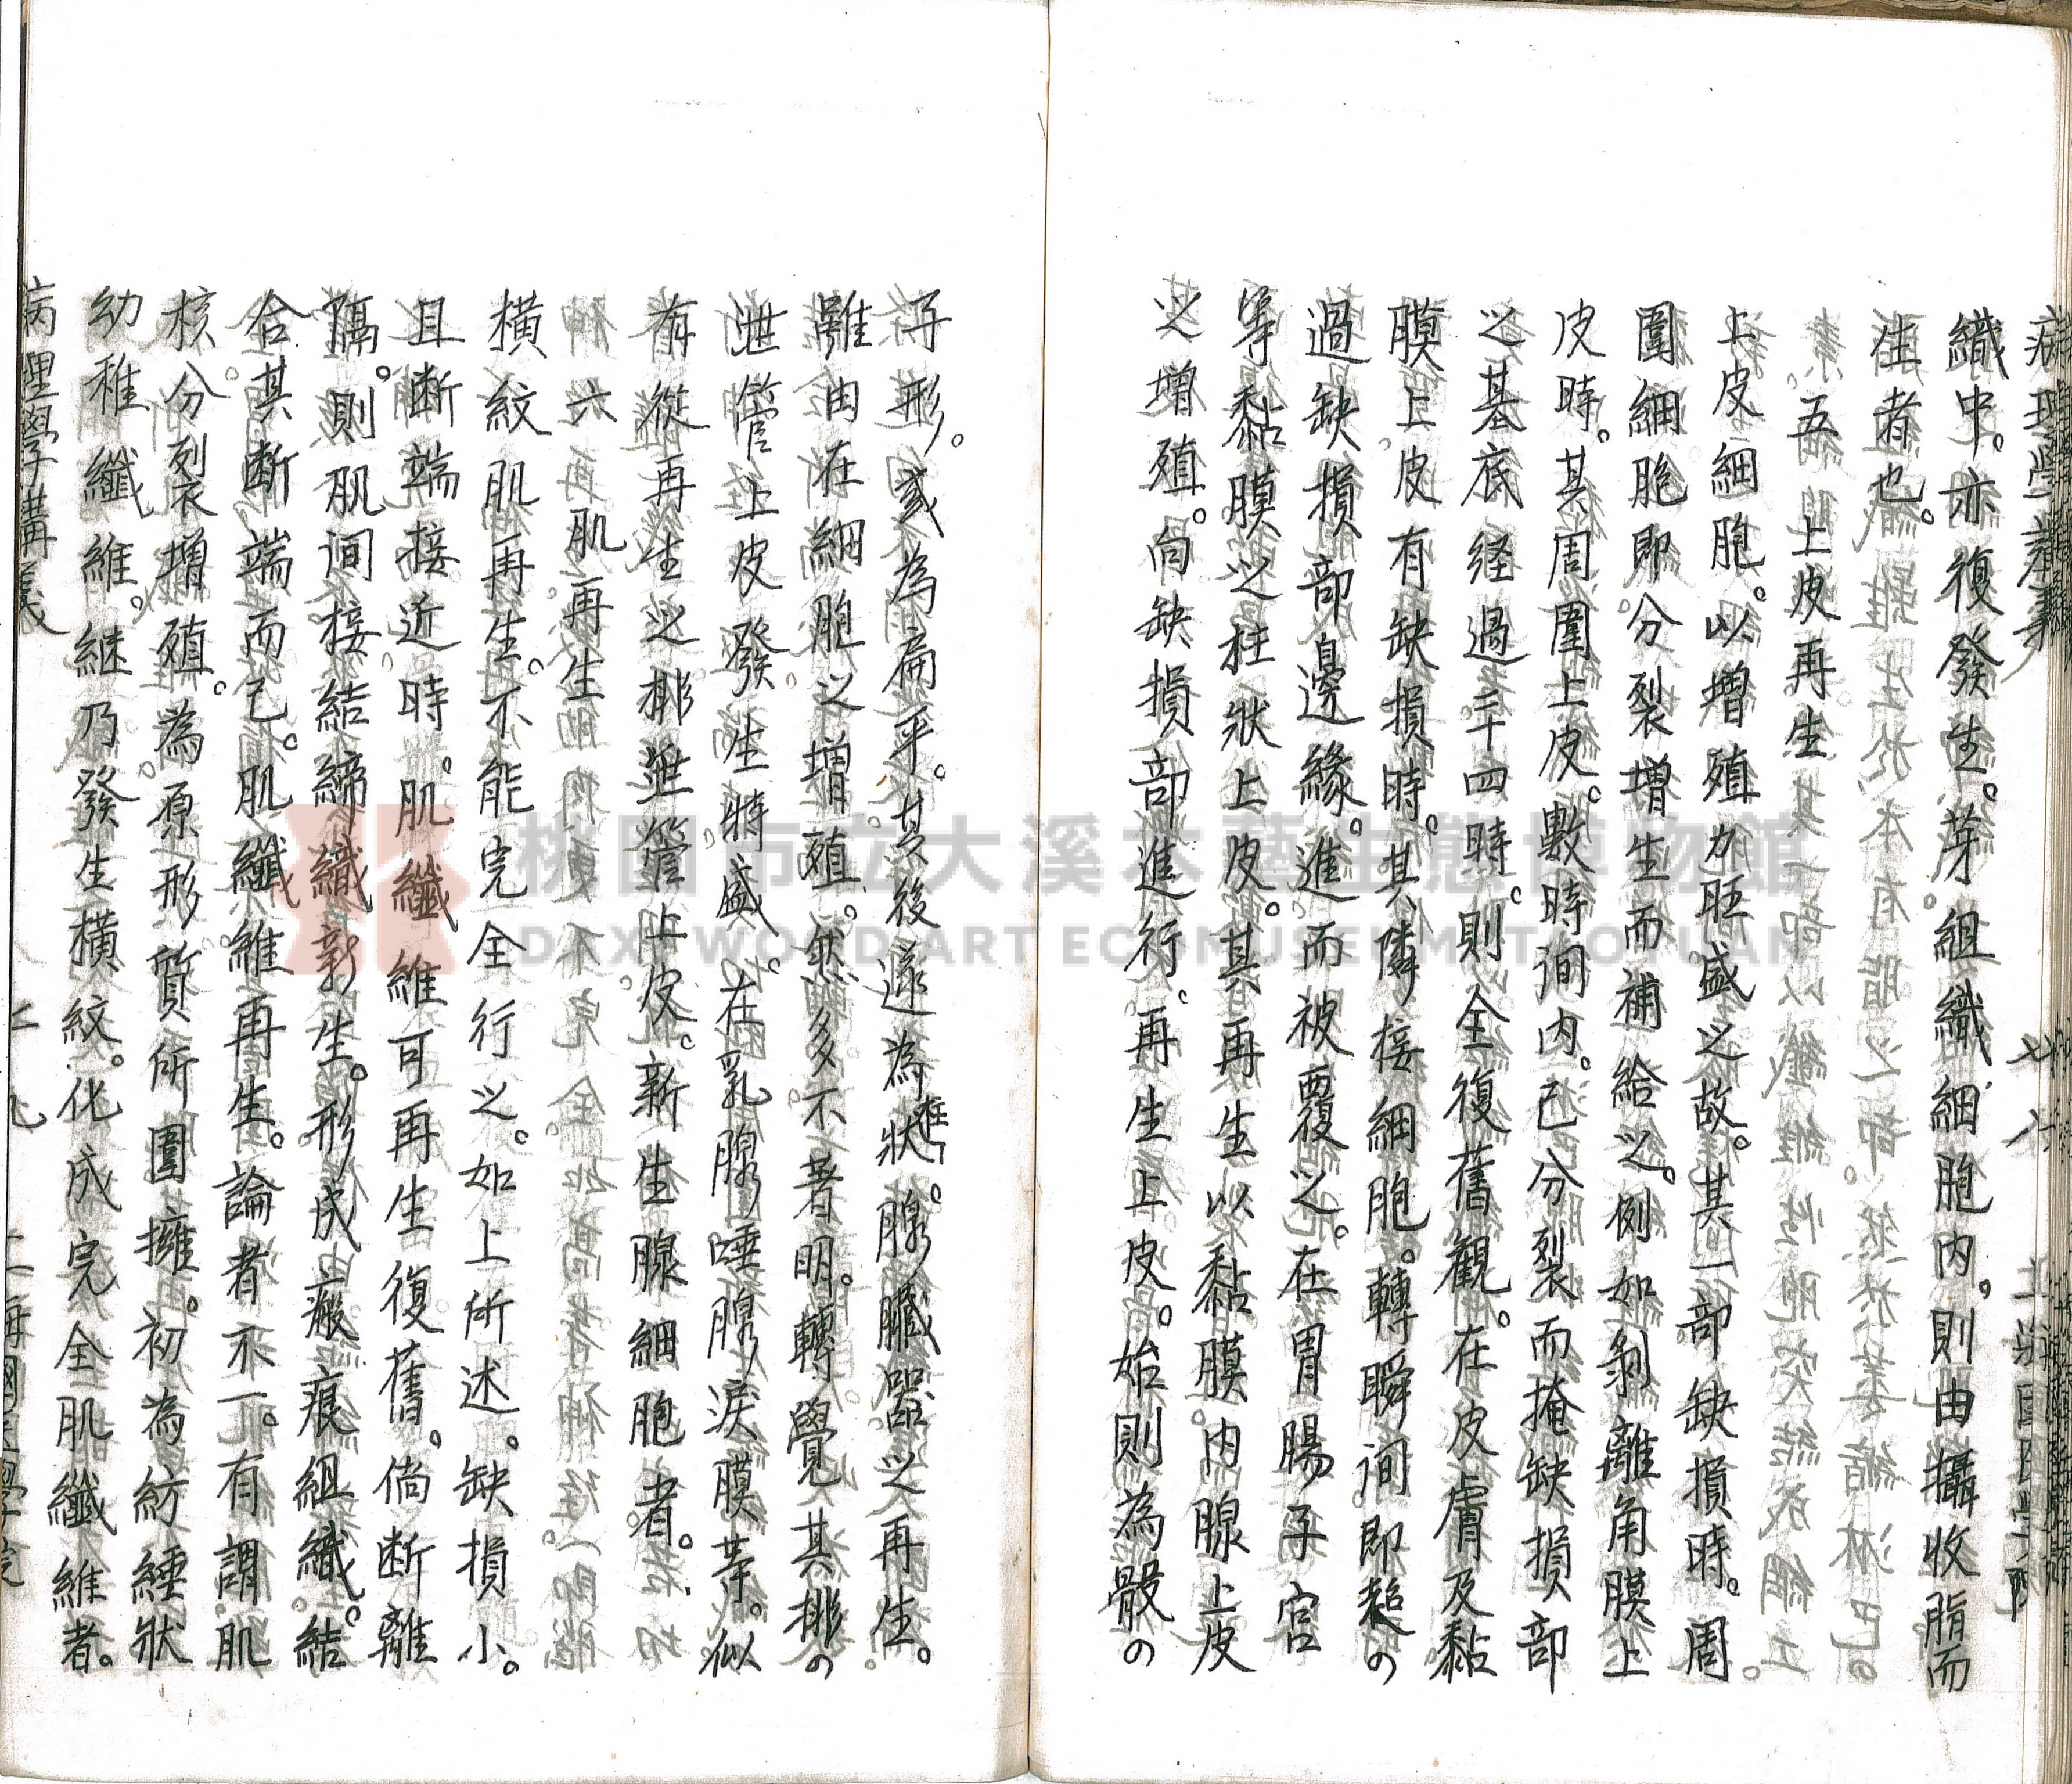 病理學講義　七八　上海國醫學院
織中。亦復發生。芽組織細胞內。則由攝收脂而
生者也。
五　上皮再生
上皮細胞。以增殖力旺盛之故。其一部缺損時。周
圍細胞即分裂增生而補給之。例如剝離角膜上
皮時。其周圍上皮。數時间內。已分裂而掩缺損部
之基底経過二十四時。則全復舊觀。在皮膚及黏
膜上皮有缺損時。其隣接細胞。轉瞬间即超の
過缺損部邊緣。進而被覆之。在胃腸子宮
等黏膜之柱狀上皮。其再生以黏膜內腺上皮
之增殖。向缺損部進行。再生上皮。始則為骰の
子形。或為扁平。其後遂為柱狀。腺臟器之再生。
雖由在細胞之增殖。然多不著明。轉覺其排の
泄管上皮發生特盛。在乳腺唾腺淚膜等。似
有從再生之排泄管上皮。新生腺細胞者。
六　肌再生
橫紋肌再生。不能完全行之。如上所述。缺損小。
且断端接近時。肌纖維可再生復舊。倘断離
隔。則肌间接結締織新生。形成瘢痕組織。結
合其断端而已。肌纖維再生。論者不一。有謂肌
核分裂增殖。為原形質所圍擁。初為紡錘狀
幼稚纖維。継乃發生橫紋。化成完全肌纖維者。
病理學講義　七九　上海國醫學院
桃園市立大溪木藝生態博物館
DAXI WOOD ART ECOMUSEUM TAOYUAN